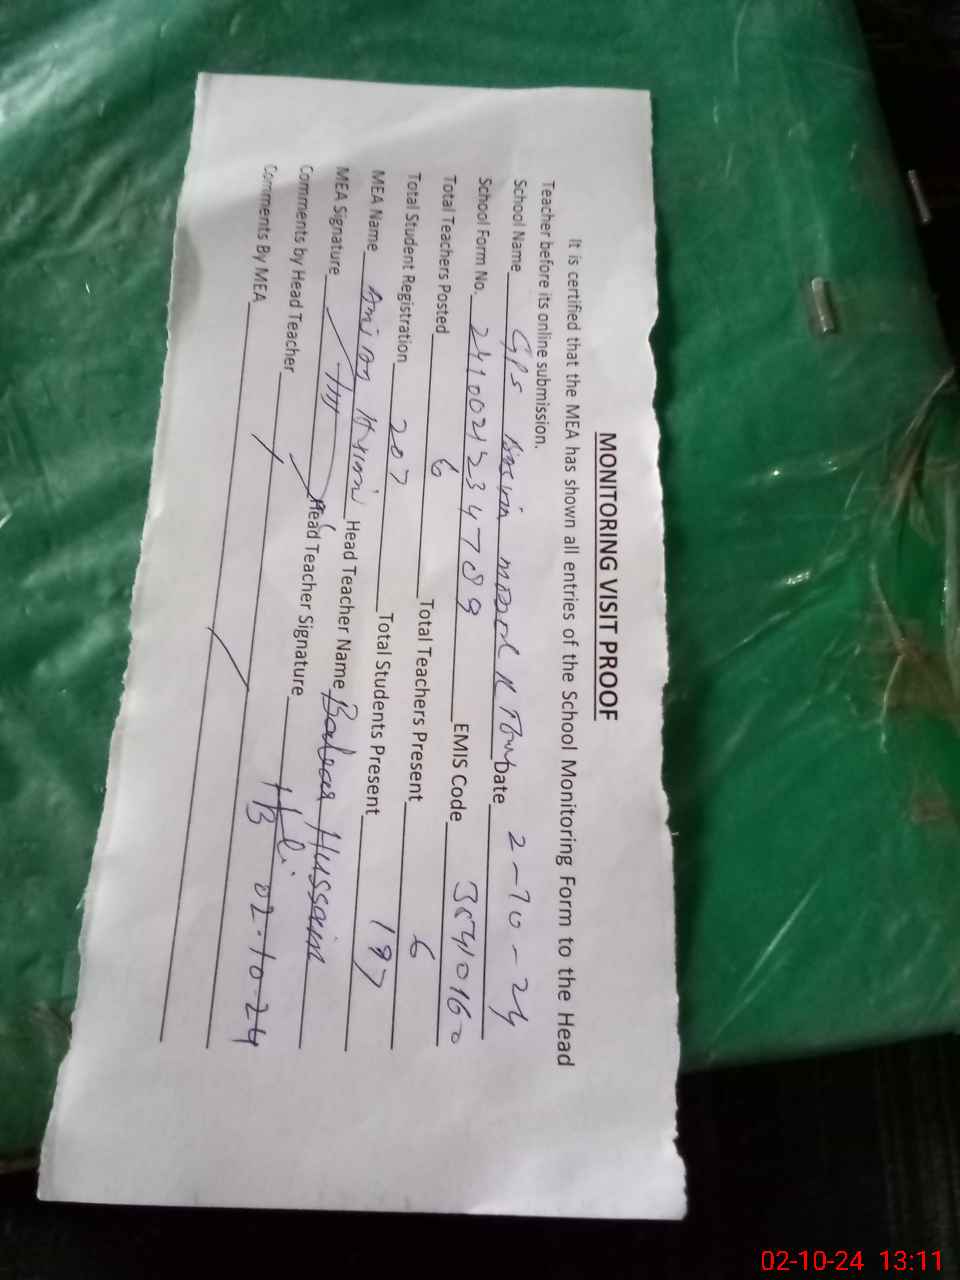 MONITORING VISIT PROOF
It is certified that the MEA has shown all entries of the School Monitoring Form to the Head
Teacher before its online submission.
School Name GPS Model Date 2-10-24
School Form No. 2410021234789 EMIS Code
Total Teachers Posted 6 Total Teachers Present 6
Total Student Registration 207 Total Students Present 197
MEA Name Head Teacher Name Hussain
MEA Signature Head Teacher Signature
Comments by Head Teacher 02-10-24
Comments By MEA
02-10-24 13:11